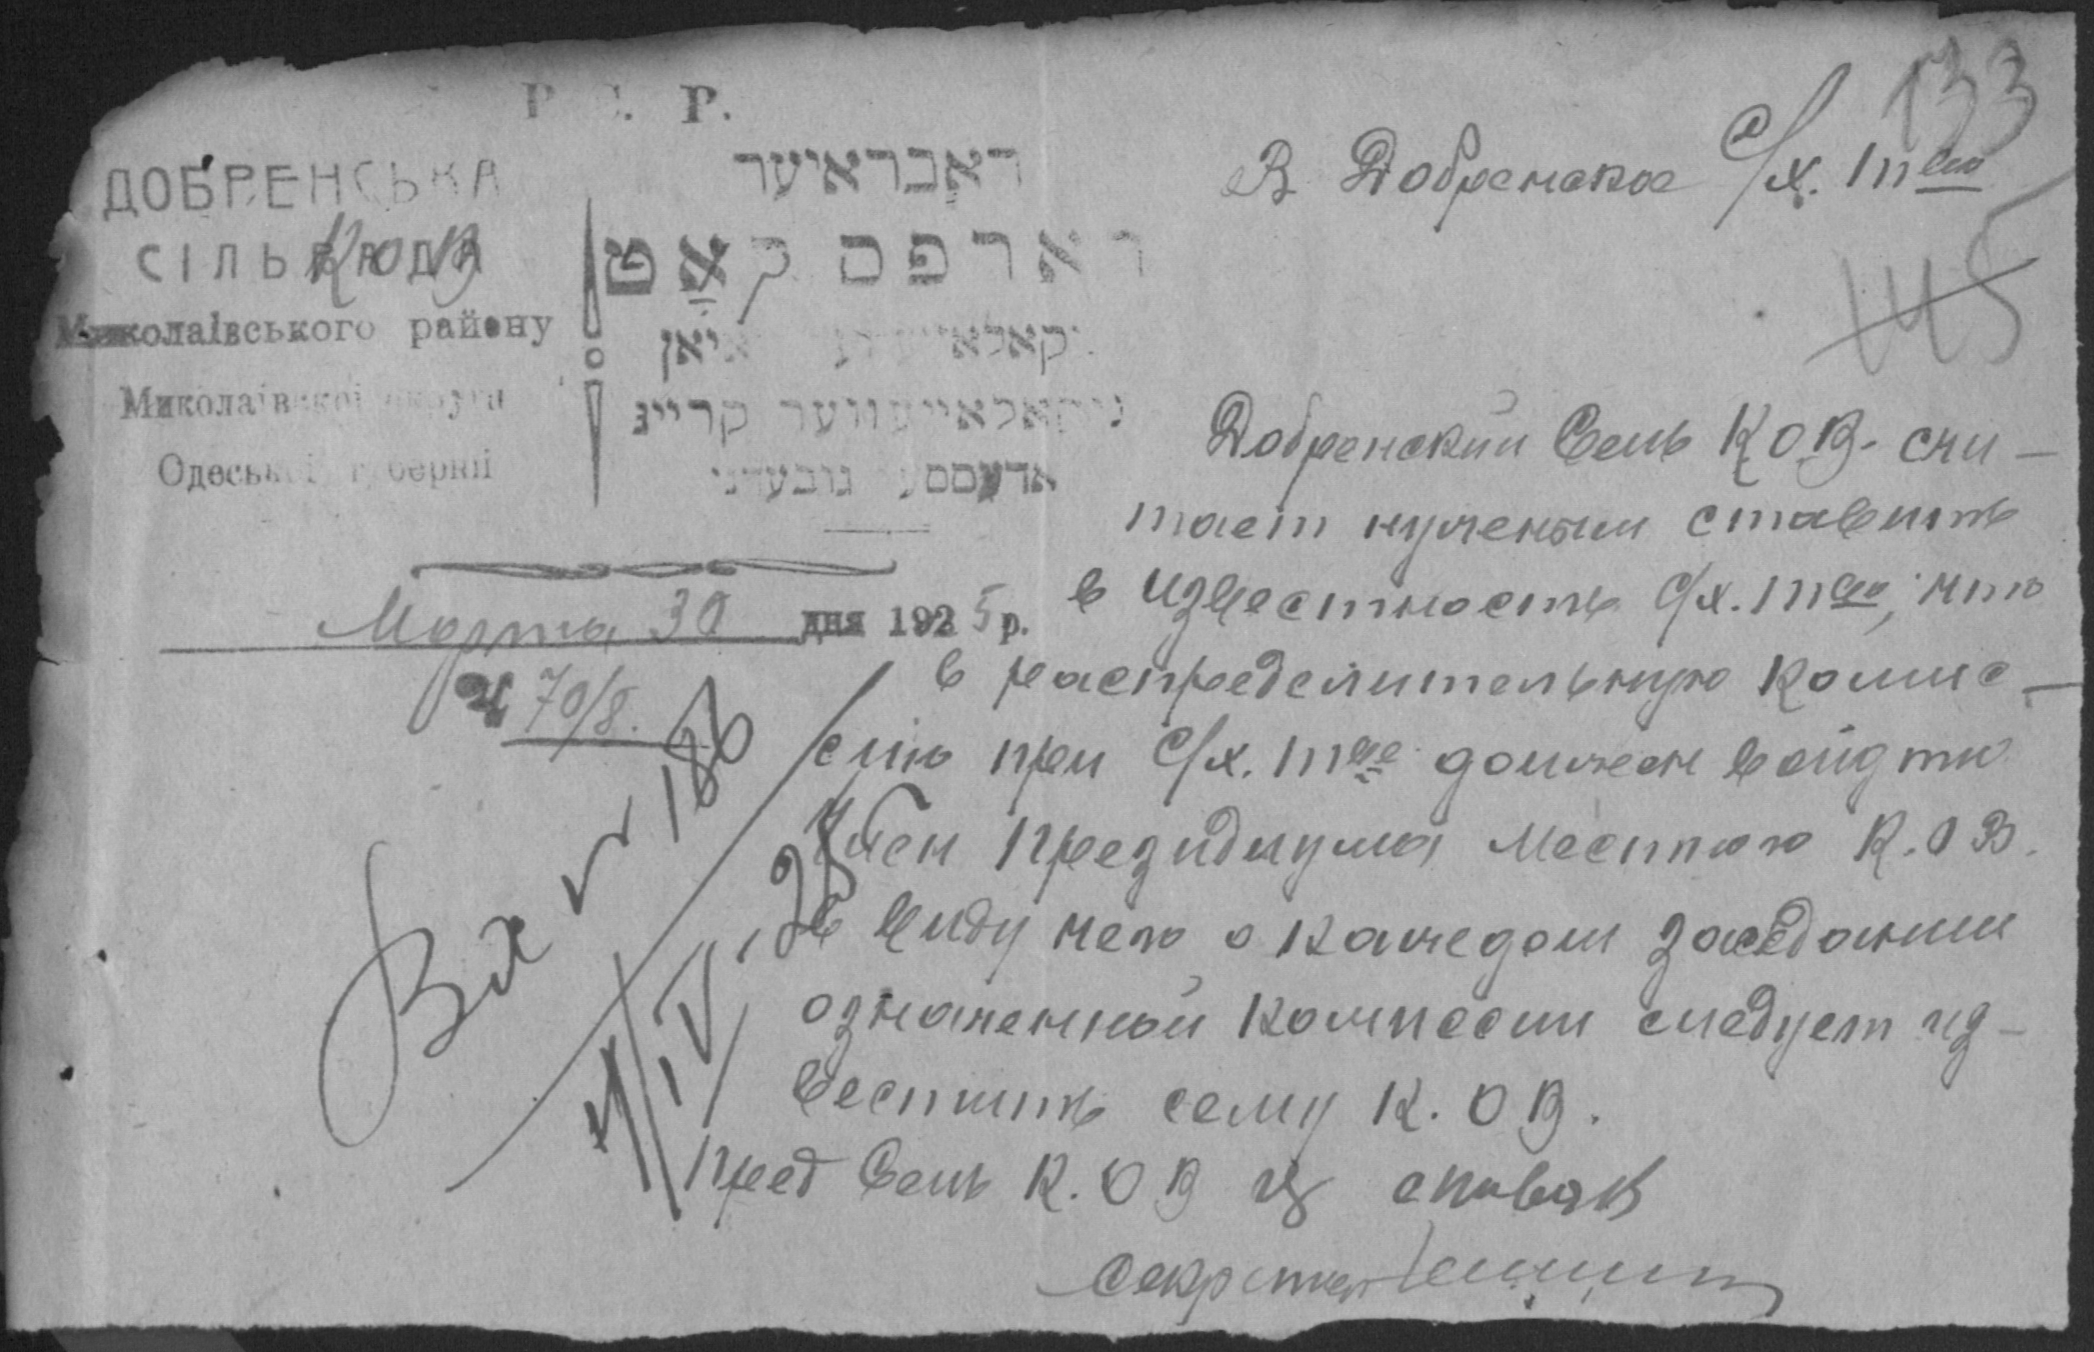 Р. С. Р.
ДОБРЕНСЬКА
СІЛЬРАДА
КОВ
Миколаївського району
Миколаївскої округи
Одеської губернії
דאבראיער
דארפס ראָט
ניקאלאייעווער ראיאן
ניקאלאייעווער קרייג
אדעססע גובערני
Марта 30 дня 1925 р.
70/8.
Вх № 186
4/IV, 25
133
145
В Добренское с/х. тво
Добренский Сель КОВ. счи-
тает нужным ставить
в известность с/х. тво, что
в распределительную комис-
сию при с/х. тве должен войдти
член президиума местного К.О В.
в виду чего о каждом заседании
означенной комиссии следует из-
вестить сему К. О В.
Пред Сель К. О В Спивак
Секретарь